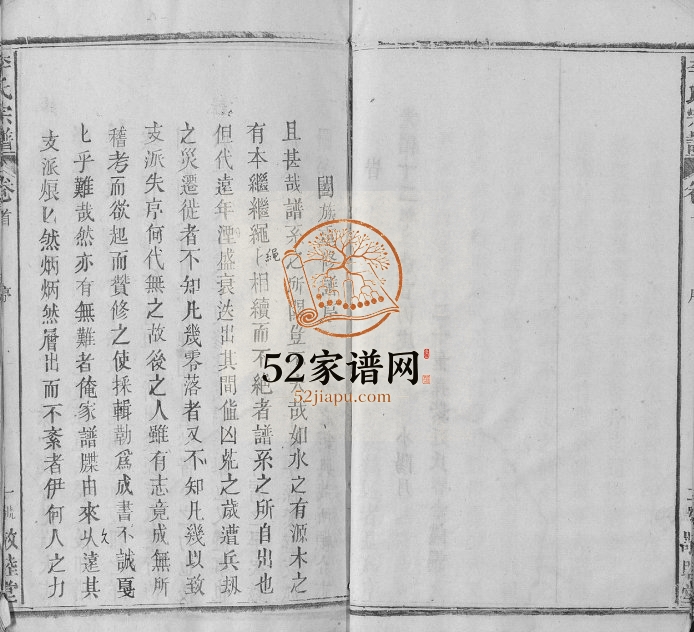 李氏宗譜
卷首
序
敦睦堂
闔族
且甚哉譜系之所關豈
哉如水之有源木之
有本繼繼繩
繩
相續而不絕者譜系之所自出也
但代遠年湮盛衰迭出其間值凶荒之歲遭兵刼
之災遷徙者不知凡幾零落者又不知凡幾以致
支派失序何代無之故後之人雖有志竟成無所
稽考而欲起而贊修之使採輯勒為成書不誠戛
匕乎難哉然亦有無難者俺家譜牒由來久遠其
支派燎匕然炳炳然層出而不紊者伊何人之力
52家谱网
52jiapu.com